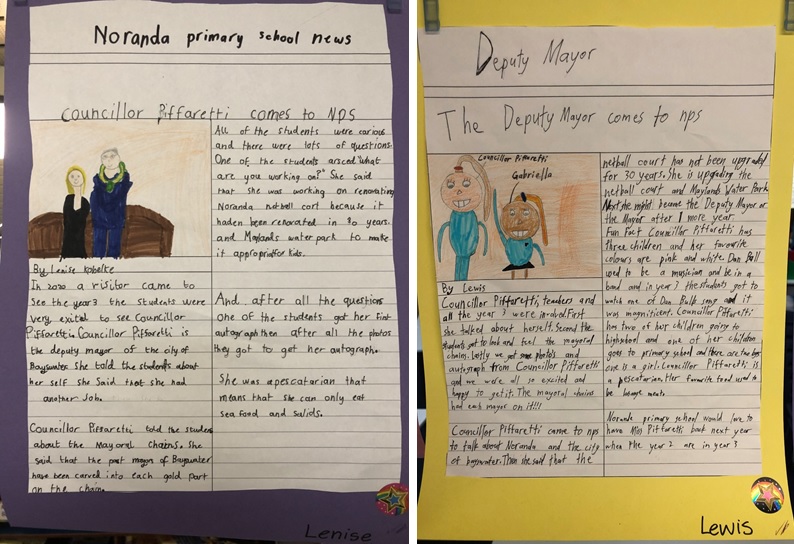 Noranda primary school news
Councillor Piffaretti comes to NPS
By Lenise Kobelke
In 2020 a visitor came to
See the year 3 the students were
very exited to see Councillor
Piffaretti. Councillor Piffaretti is
the deputy mayor of the city of
Bayswater She told the students about
her self She Said that She had
another Job.
Councillor Piffaretti told the student
about the Mayoral Chains. She
said that the past mayors of Bayswater
have been carved into each gold part
on the chain.
All of the students were carious
and there were lots of questions.
One of the students arsced "what
are you working on?" She said
that she was working on renovating
Noranda netball cort because it
haden been renorated in 30 years.
and Maylands water park to make
it appropriat for kids.
And after all the questions
one of the students got her first
autograph then after all the photos
they got to get her autograph.
She was a pescatarian that
means that she can only eat
sea food and salids.
Lenise
Deputy Mayor
The Deputy Mayor comes to nps
Councillor Piffaretti
Gabriella
By Lewis
Councillor Piffaretti, teachers and
all the year 3 were involved First
she talked about herself. Second the
students got to look and feel the mayoral
chains. Lastly we got some photo's and
autograph from Councillor Piffaretti
and we were all so excited and
happy to get it. The mayoral chains
had each mayor on it!!!
Councillor Piffaretti came to nps
to talk about Noranda and the city
of bayswater. Then she said that the
netball court has not been upgraded
for 30 years. She is upgrading the
netball court and Maylands Water Park.
Next she might became the Deputy Mayor or
the Mayor after 1 more year.
Fun Fact Councillor Piffaretti has
three children and her favourite
colours are pink and white Dan Bull
used to be a musician and be in a
band and in year 3 the students got to
watch one of Dan Bulls song and it
was magnificent. Councillor Piffaretti
has two of her children going to
highschool and one of her children
goes to primary school and there are two boys
one is a girl. Councillor Piffaretti is
a pescatarian. Her favourite food used to
be
Noranda primary school would love to
have Miss Piffaretti back next year
when the year 2 are in year 3
Lewis